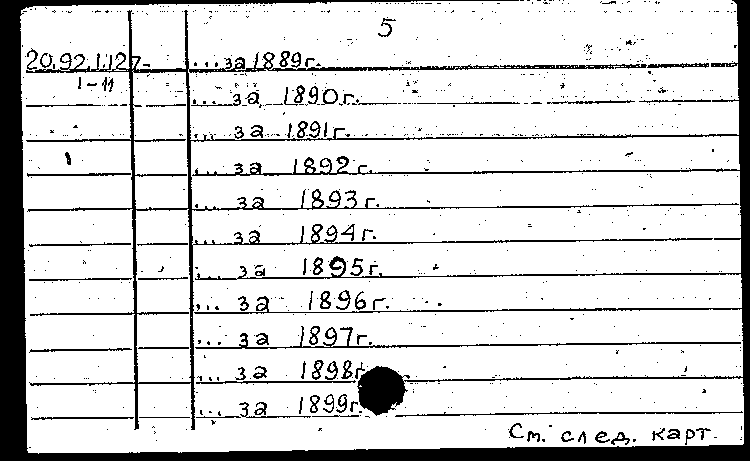 5
20.92.1.127- ...за 1889г.
1-11 ...за 1890г.
...за 1891г.
...за 1892г.
...за 1893г.
...за 1894г.
...за 1895г.
...за 1896г.
...за 1897г.
...за 1898г.
...за 1899г.
См. след. карт.